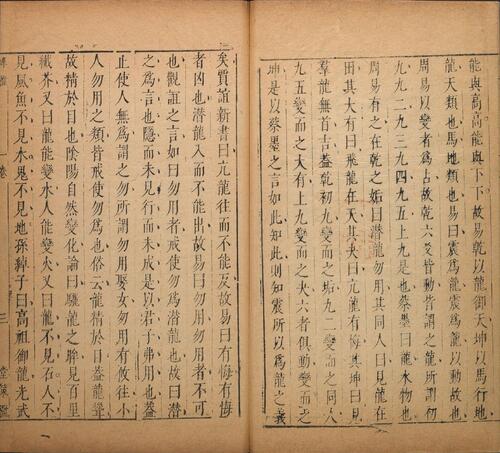 能與高高能與下下故上易乾以龍御天坤以馬行地
龍天類也馬地類也易曰震爲龍以動故也
周易以變者爲占故乾六爻皆動皆謂之龍所謂初
九九二九三九四九五上九是也蔡墨曰龍水物也
周易有之在乾之姤曰潛龍勿用其同人曰見龍在
田其大有曰飛龍在天其夬曰亢龍有悔其坤曰見
羣龍無首吉葢乾初九變而之姤九二變而之同人
九五變而之大有上九變而之夬六者俱動變而之
坤是以蔡墨之言如此知此則知震所以爲龍之義
矣賈誼新書曰亢龍往而不能反故易曰有悔有悔
者凶也潛龍入而不能出故易曰勿用勿用者不可
也觀誼之言如曰勿用者戒使勿爲潛龍也故曰潛
之爲言也隱而未見行而未成是以君子弗用也葢
止使人無爲謂之勿所謂勿用娶女勿用有攸往小
人勿用之類皆戒使勿爲也俗云龍精於目葢龍聾
故精於目也陰陽自然變化論曰驪龍之眸見百里
纖芥又曰龍能變水人能變火又曰龍不見石人不
見風魚不見水鬼不見地孫綽子曰高祖御龍光武
埤雅 卷一 三